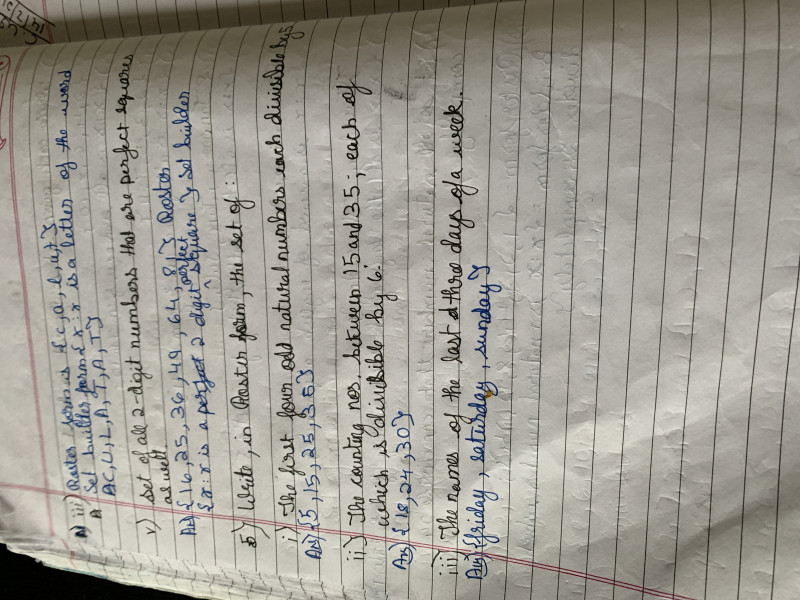 iii) Roster form is {c, a, l, u, t}
Set builder form {x : x is a letter of the word
A AC, U, L, A, T, A, T}
v) Set of all 2 digit numbers that are perfect squares
as well
Ans) {16, 25, 36, 49, 64, 81} Roster
{x : x is a perfect 2 digit perfect square } set builder
5) Write, in Roster form, the set of :
i) The first four odd natural numbers each divisible by 5
Ans) {5, 15, 25, 35}
ii) The counting nos. between 15 and 35; each of
which is divisible by 6.
Ans) {18, 24, 30}
iii) The names of the last three days of a week.
Ans) {friday, saturday, sunday}